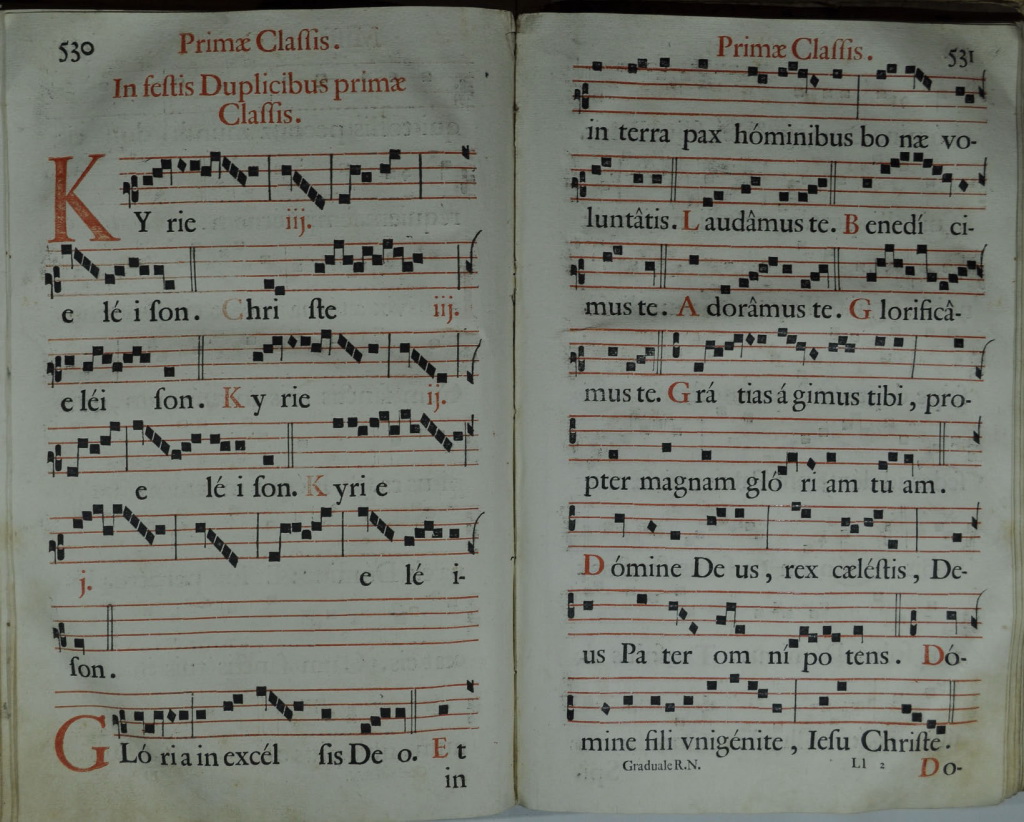 530
Primæ Claſſis.
In feſtis Duplicibus primæ
Claſſis.
KY rie iij.
e lé i ſon. Chri ſte iij.
e léi ſon. K y rie ij.
e lé i ſon. K yri e
j. e lé i-
ſon.
GLó ri a in excél ſis De o. E t
in
Primæ Claſſis. 531
in terra pax hóminibus bo næ vo-
luntâtis. L audâmus te. B enedí ci-
mus te. A dorâmus te. G lorificâ-
mus te. G rá tias á gimus tibi, pro-
pter magnam gló ri am tu am.
D ómine De us, rex cæléſtis, De-
us Pa ter om ní po tens. Dó-
mine fili vnigénite, Ieſu Chriſte.
Graduale R.N. Ll 2 Do-